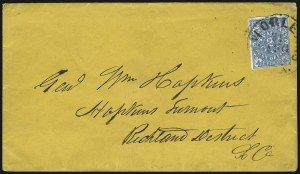 Genl Wm Hopkins
Hopkins Turnout
Richland District
So Ca